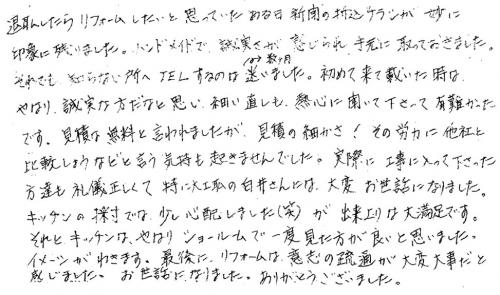 退職したらリフォームしたいと思っていたある日新聞の折込チラシが妙に
印象に残りました。ハンドメイドで、誠実さが感じられ手元に取っておきました。
それでも知らない所へTELするのは数ヶ月迷いました。初めて来て戴いた時は
やはり、誠実な方だなと思い、細い直しも、熱心に聞いて下さって有難かった
です。見積は無料と言われましたが、見積の細かさ!その労力に他社と
比較しようなどと言う気持も起きませんでした。実際に工事に入って下さった
方達も礼儀正しくて特に大工取の白井さんには、大変お世話になりました。
キッチンの採寸では、少し心配しました(笑)が出来上りは大満足です。
それとキッチンは、やはりショールームで一度見た方が良いと思いました。
イメージがわきます。最後に、リフォームは、意志の疎通が大変大事だと
感じました。お世話になりました。ありがとうございました。